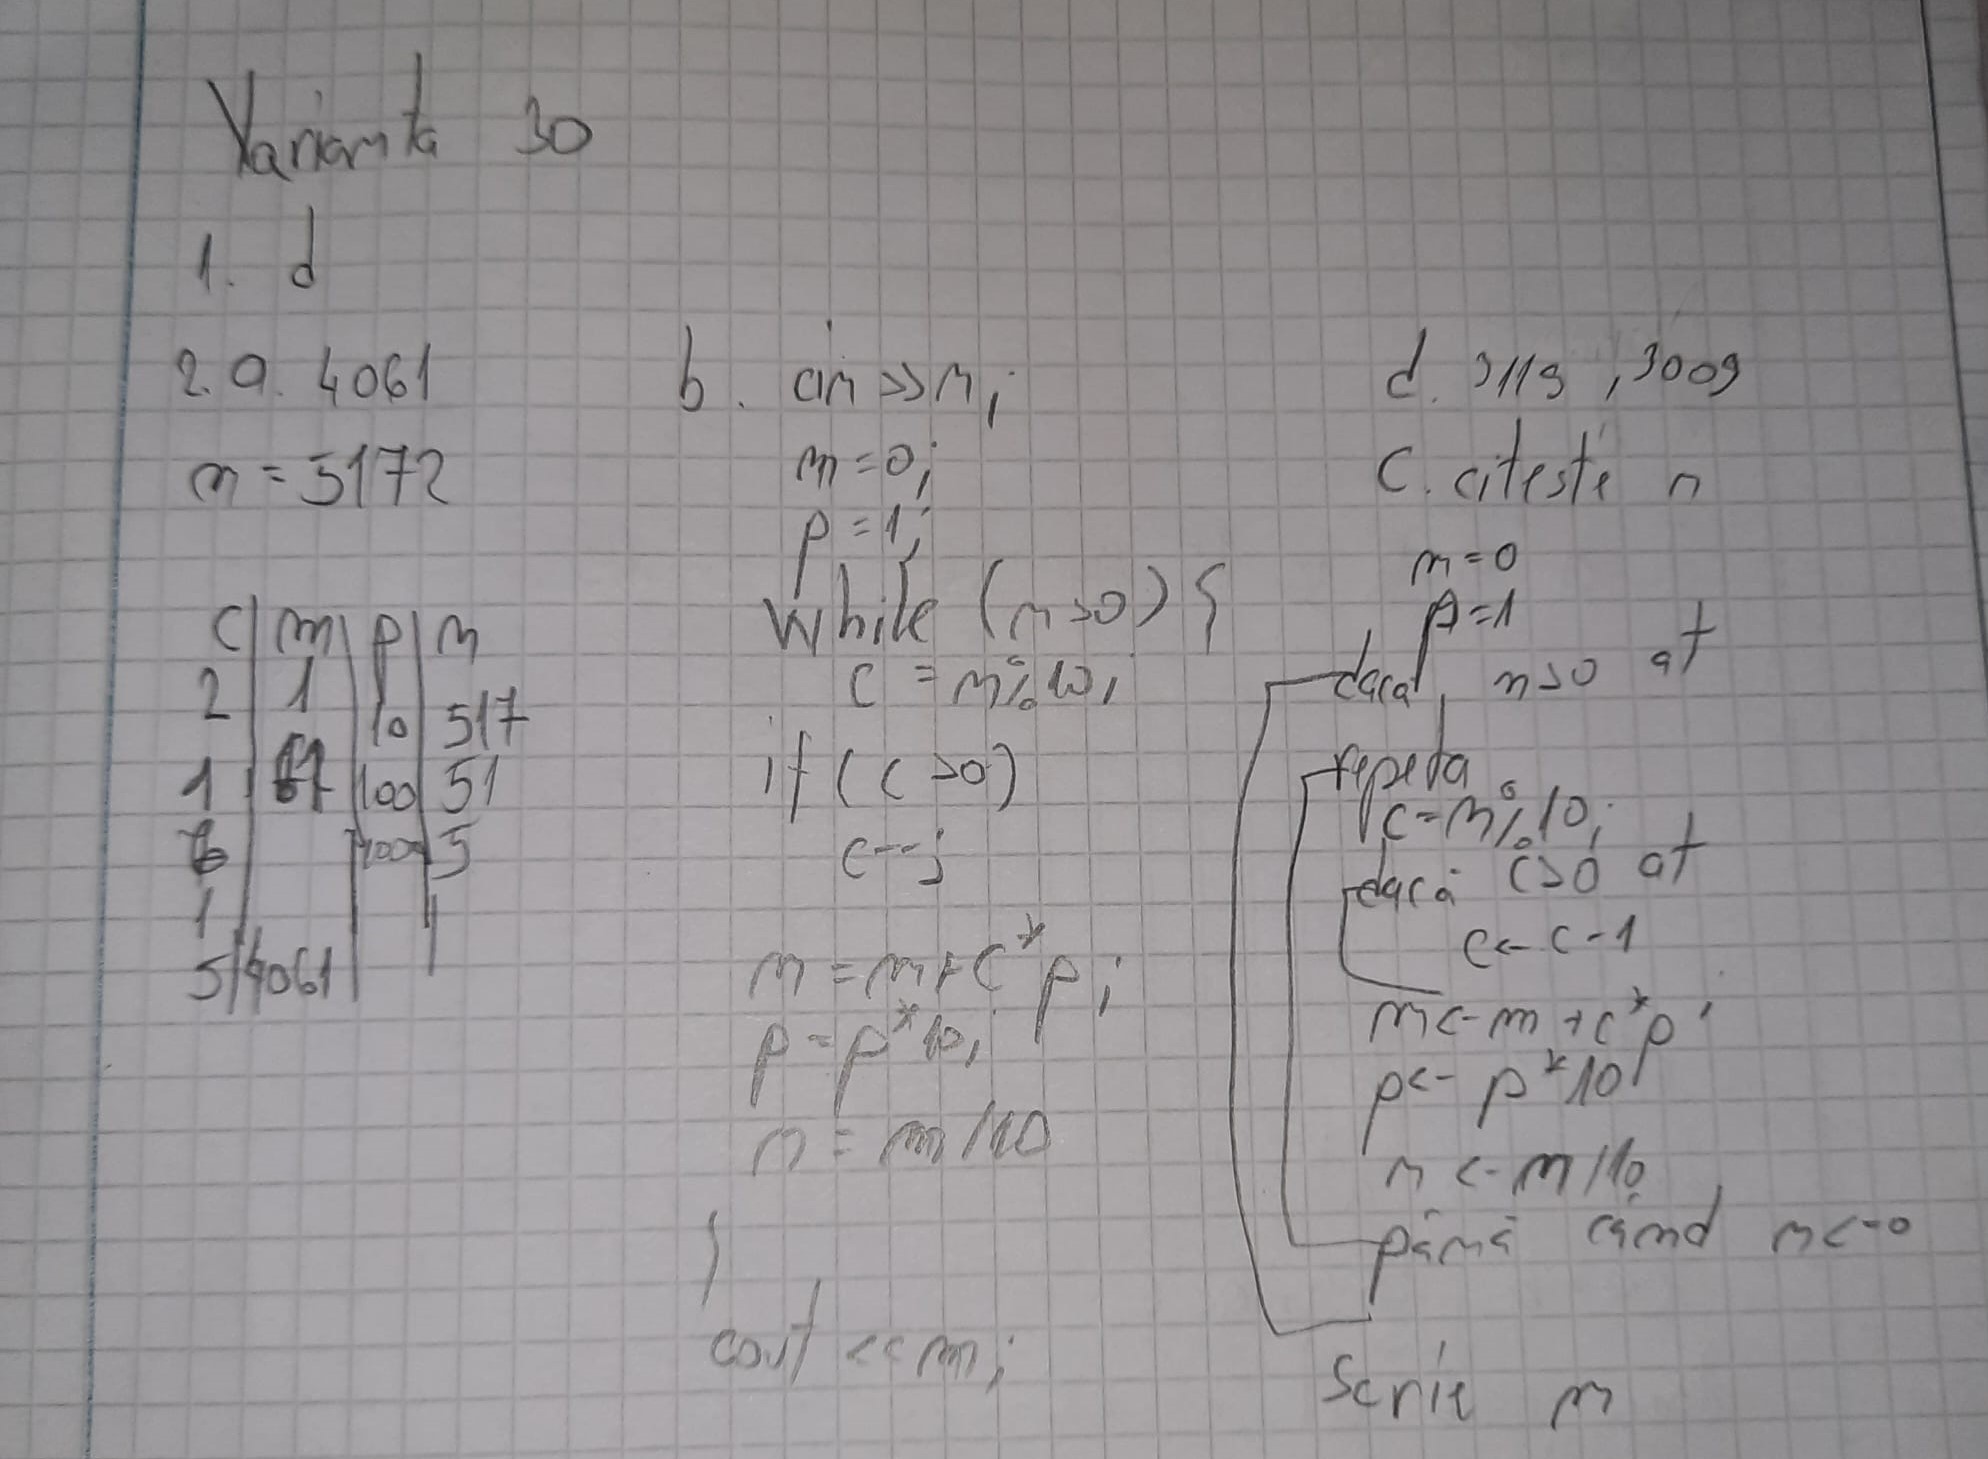 Varianta 30
1. d
2. a. 4061
n = 5172
C | m | p | n
2 | 1 | 10 | 517
1 | | 100 | 51
6 | | 1000 | 5
1
5 | 4061
b. cin >> n;
m = 0;
p = 1;
while (n > 0) {
c = n % 10;
if (c > 0)
c--;
m = m + c * p;
p = p * 10;
n = n / 10
}
cout << m;
d. 3119, 3009
C. citeste n
m = 0
p = 1
daca n > 0 at
repeta
c = n % 10;
dacă c > 0 at
c <- c - 1
m <- m + c * p;
p <- p * 10
n <- n / 10
până când n <= 0
Scrie m